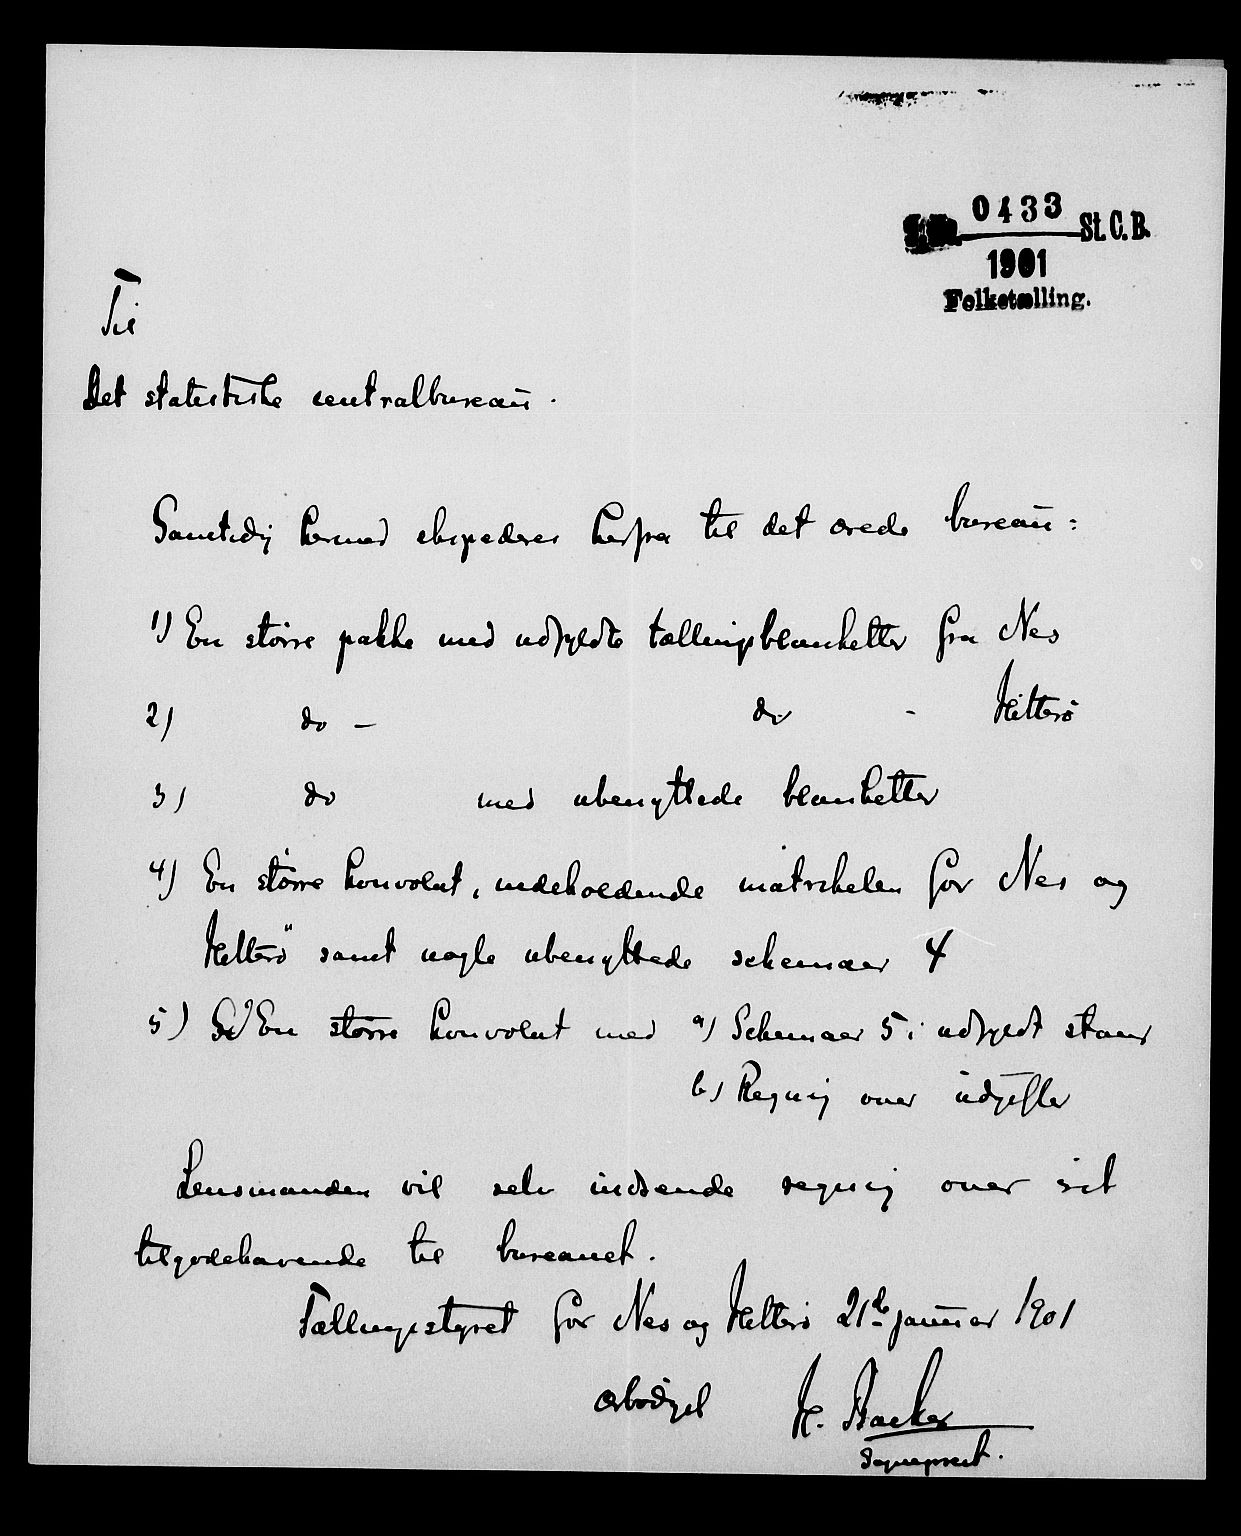 0433 St. C. B.
1901
Folketælling.
Til
Det statistiske centralbureau.
Samtidig hermed ekspederes herfra til det ærede bureau:
1) En större pakke med udfyldte tællingsblanketter fra Nes
2) do - do - Hitterö
3) do med ubenyttede blanketter
4) En större konvolut, indeholdende matrikelen for Nes og
Hitterö samt nogle ubenyttede schemaer 4
5) En större konvolut med a) Schemaer 5 i udfyldt stand
b) Regning over udgifter
Lensmanden vil selv indsende regning over sit
tilgodehavende til bureauet.
Tællingsstyret for Nes og Hitterö 21de januar 1901
ærbödigst H. Backer
sogneprest.